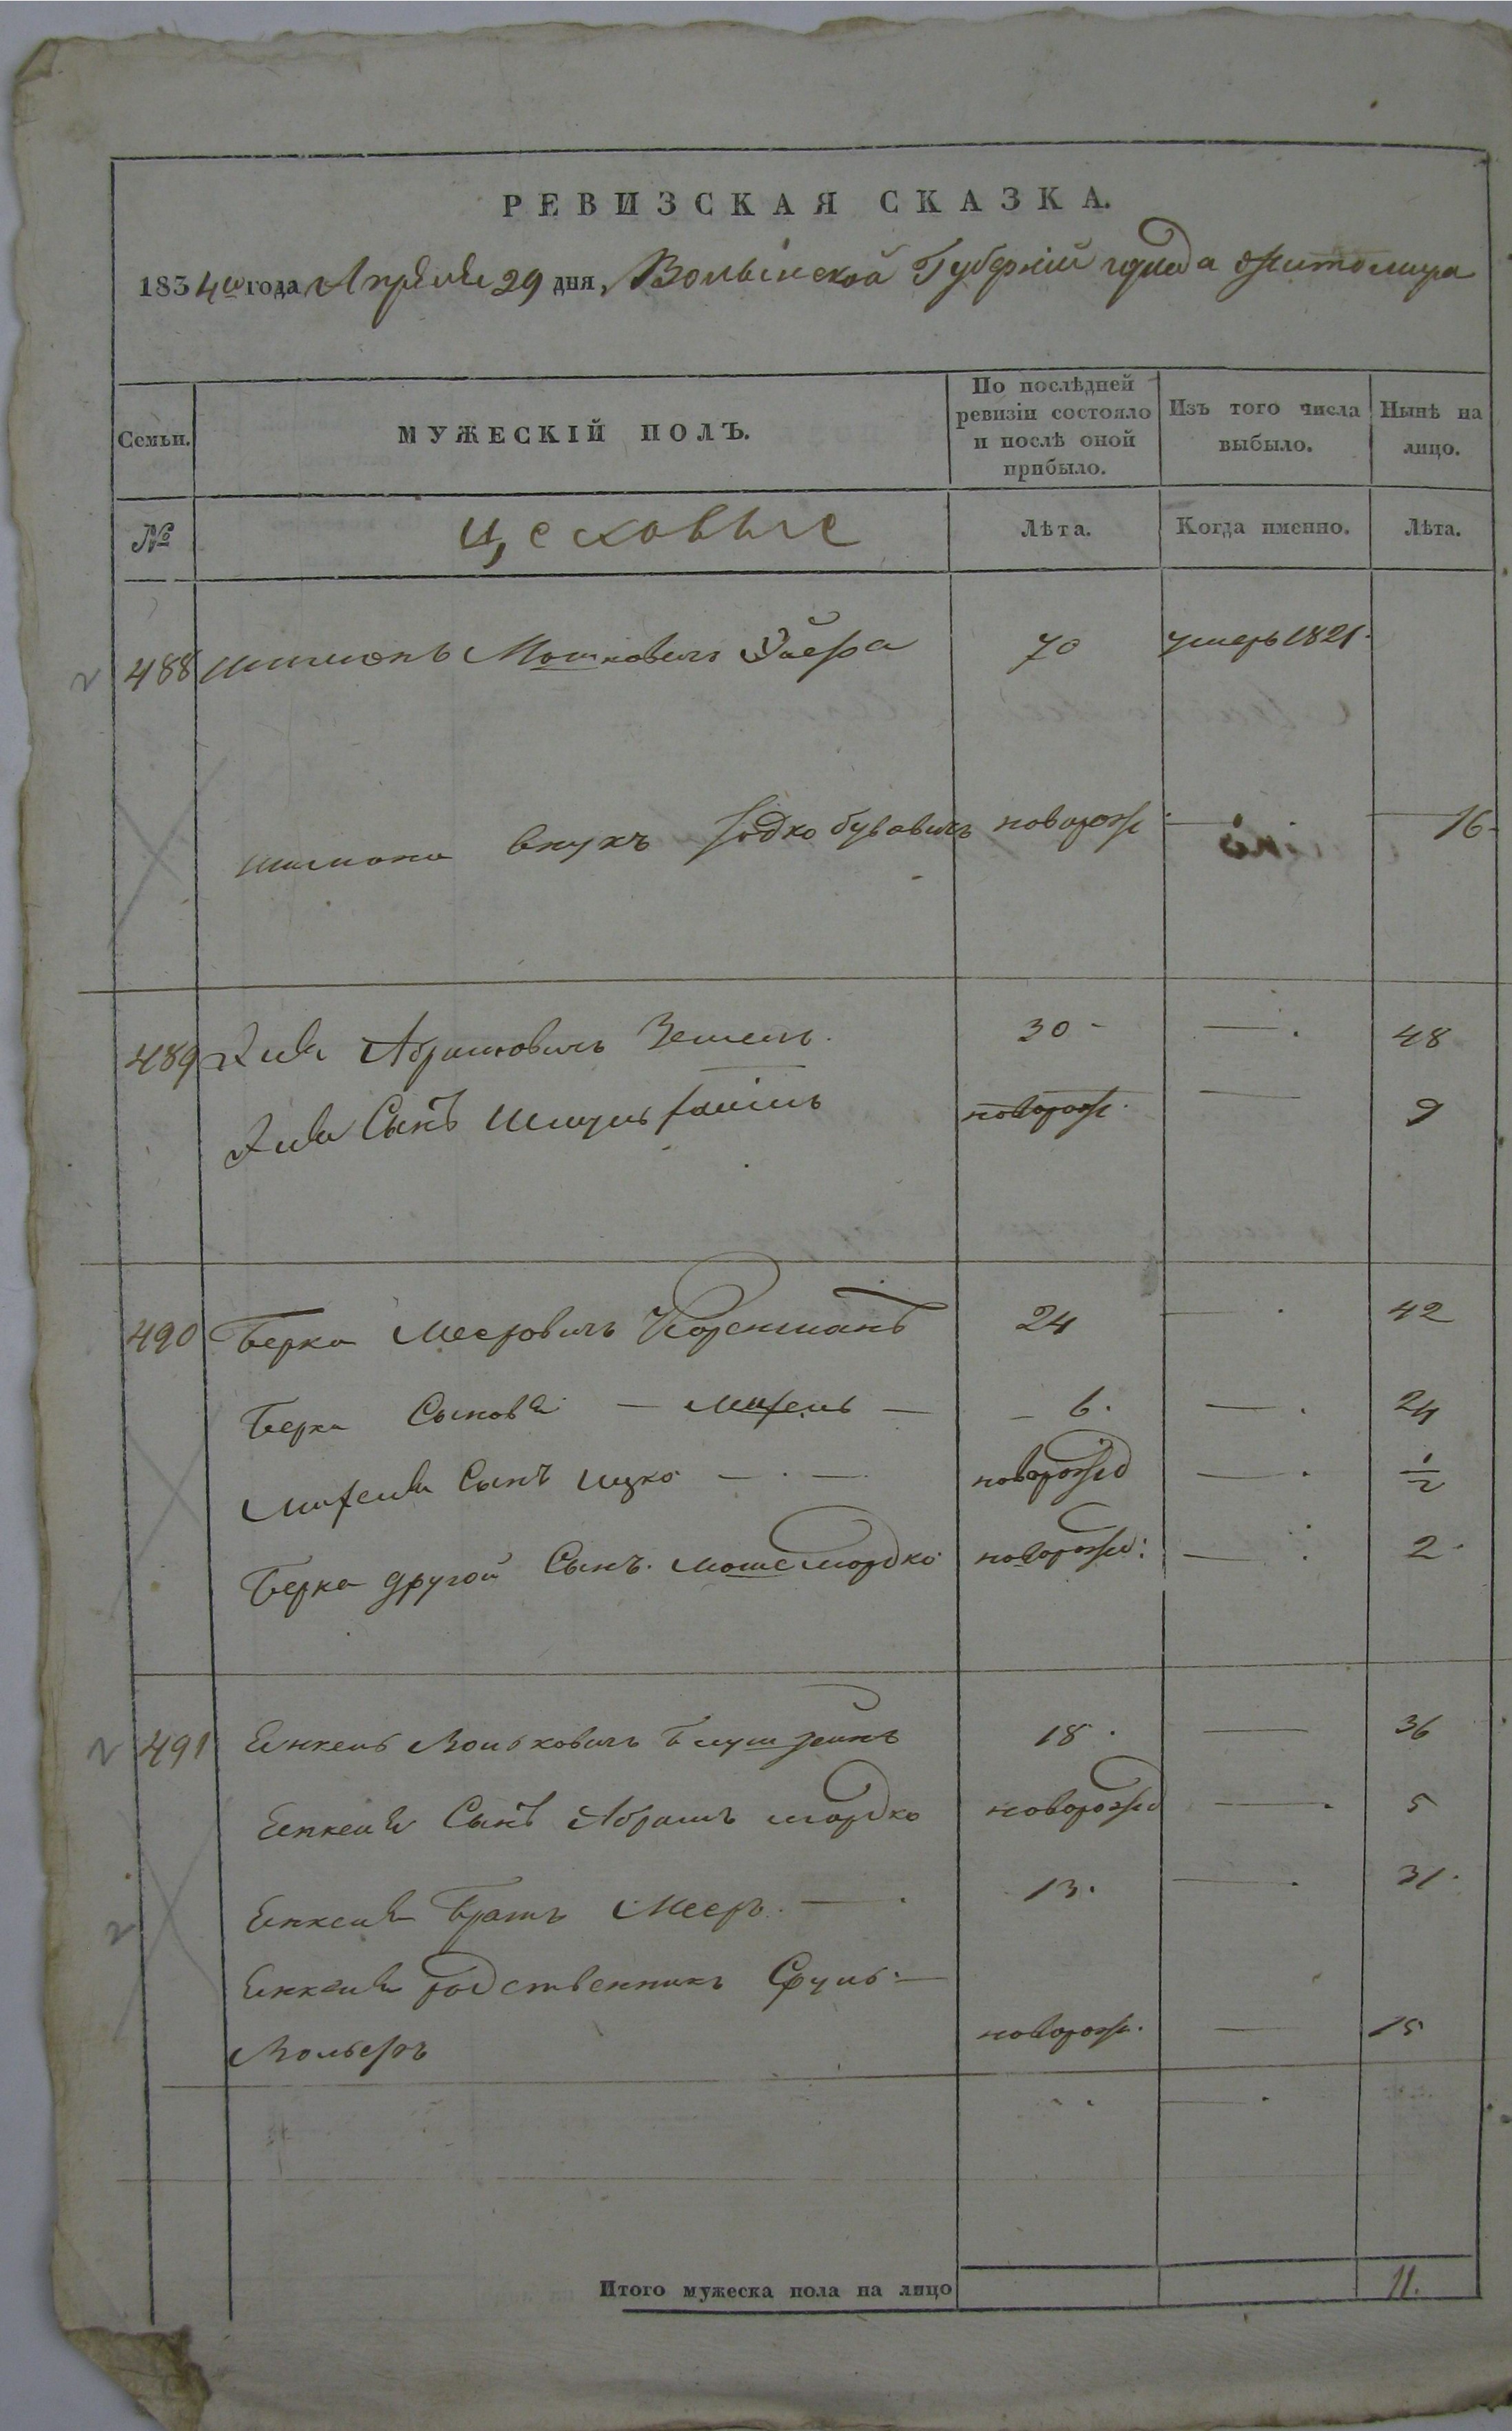 РЕВИЗСКАЯ СКАЗКА.
1834го года Апреля 29 дня, Волынской Губерніи города Житомира
Семьи.
МУЖЕСКІЙ ПОЛЪ.
По послѣдней ревизіи состояло и послѣ оной прибыло.
Изъ того числа выбыло.
Нынѣ на лицо.
№
Цеховые
Лѣта.
Когда именно.
Лѣта.
488 Шимонъ Мошковичъ 70 умеръ 1821.
Шимона внукъ новорож — 16
489 Абрамовичъ 30 — 48
Сынъ Шмуль новорож. — 9
490 Берко Мееровичъ Коренманъ 24 — 42
Берка Сыновья — Михель — 6. — 24
Михеля Сынъ Ицко — новорожд — 1/2
Берка другой Сынъ Мошемордко новорожд: — 2
491 Енкель Вольковичъ 18 — 36
Енкеля Сынъ Абрамъ мордко новорожд — 5
Енкеля Братъ Мееръ — 13. — 31
Енкеля родственникъ Сруль —
Вольферъ новорож. — 15
Итого мужеска пола на лицо 11.